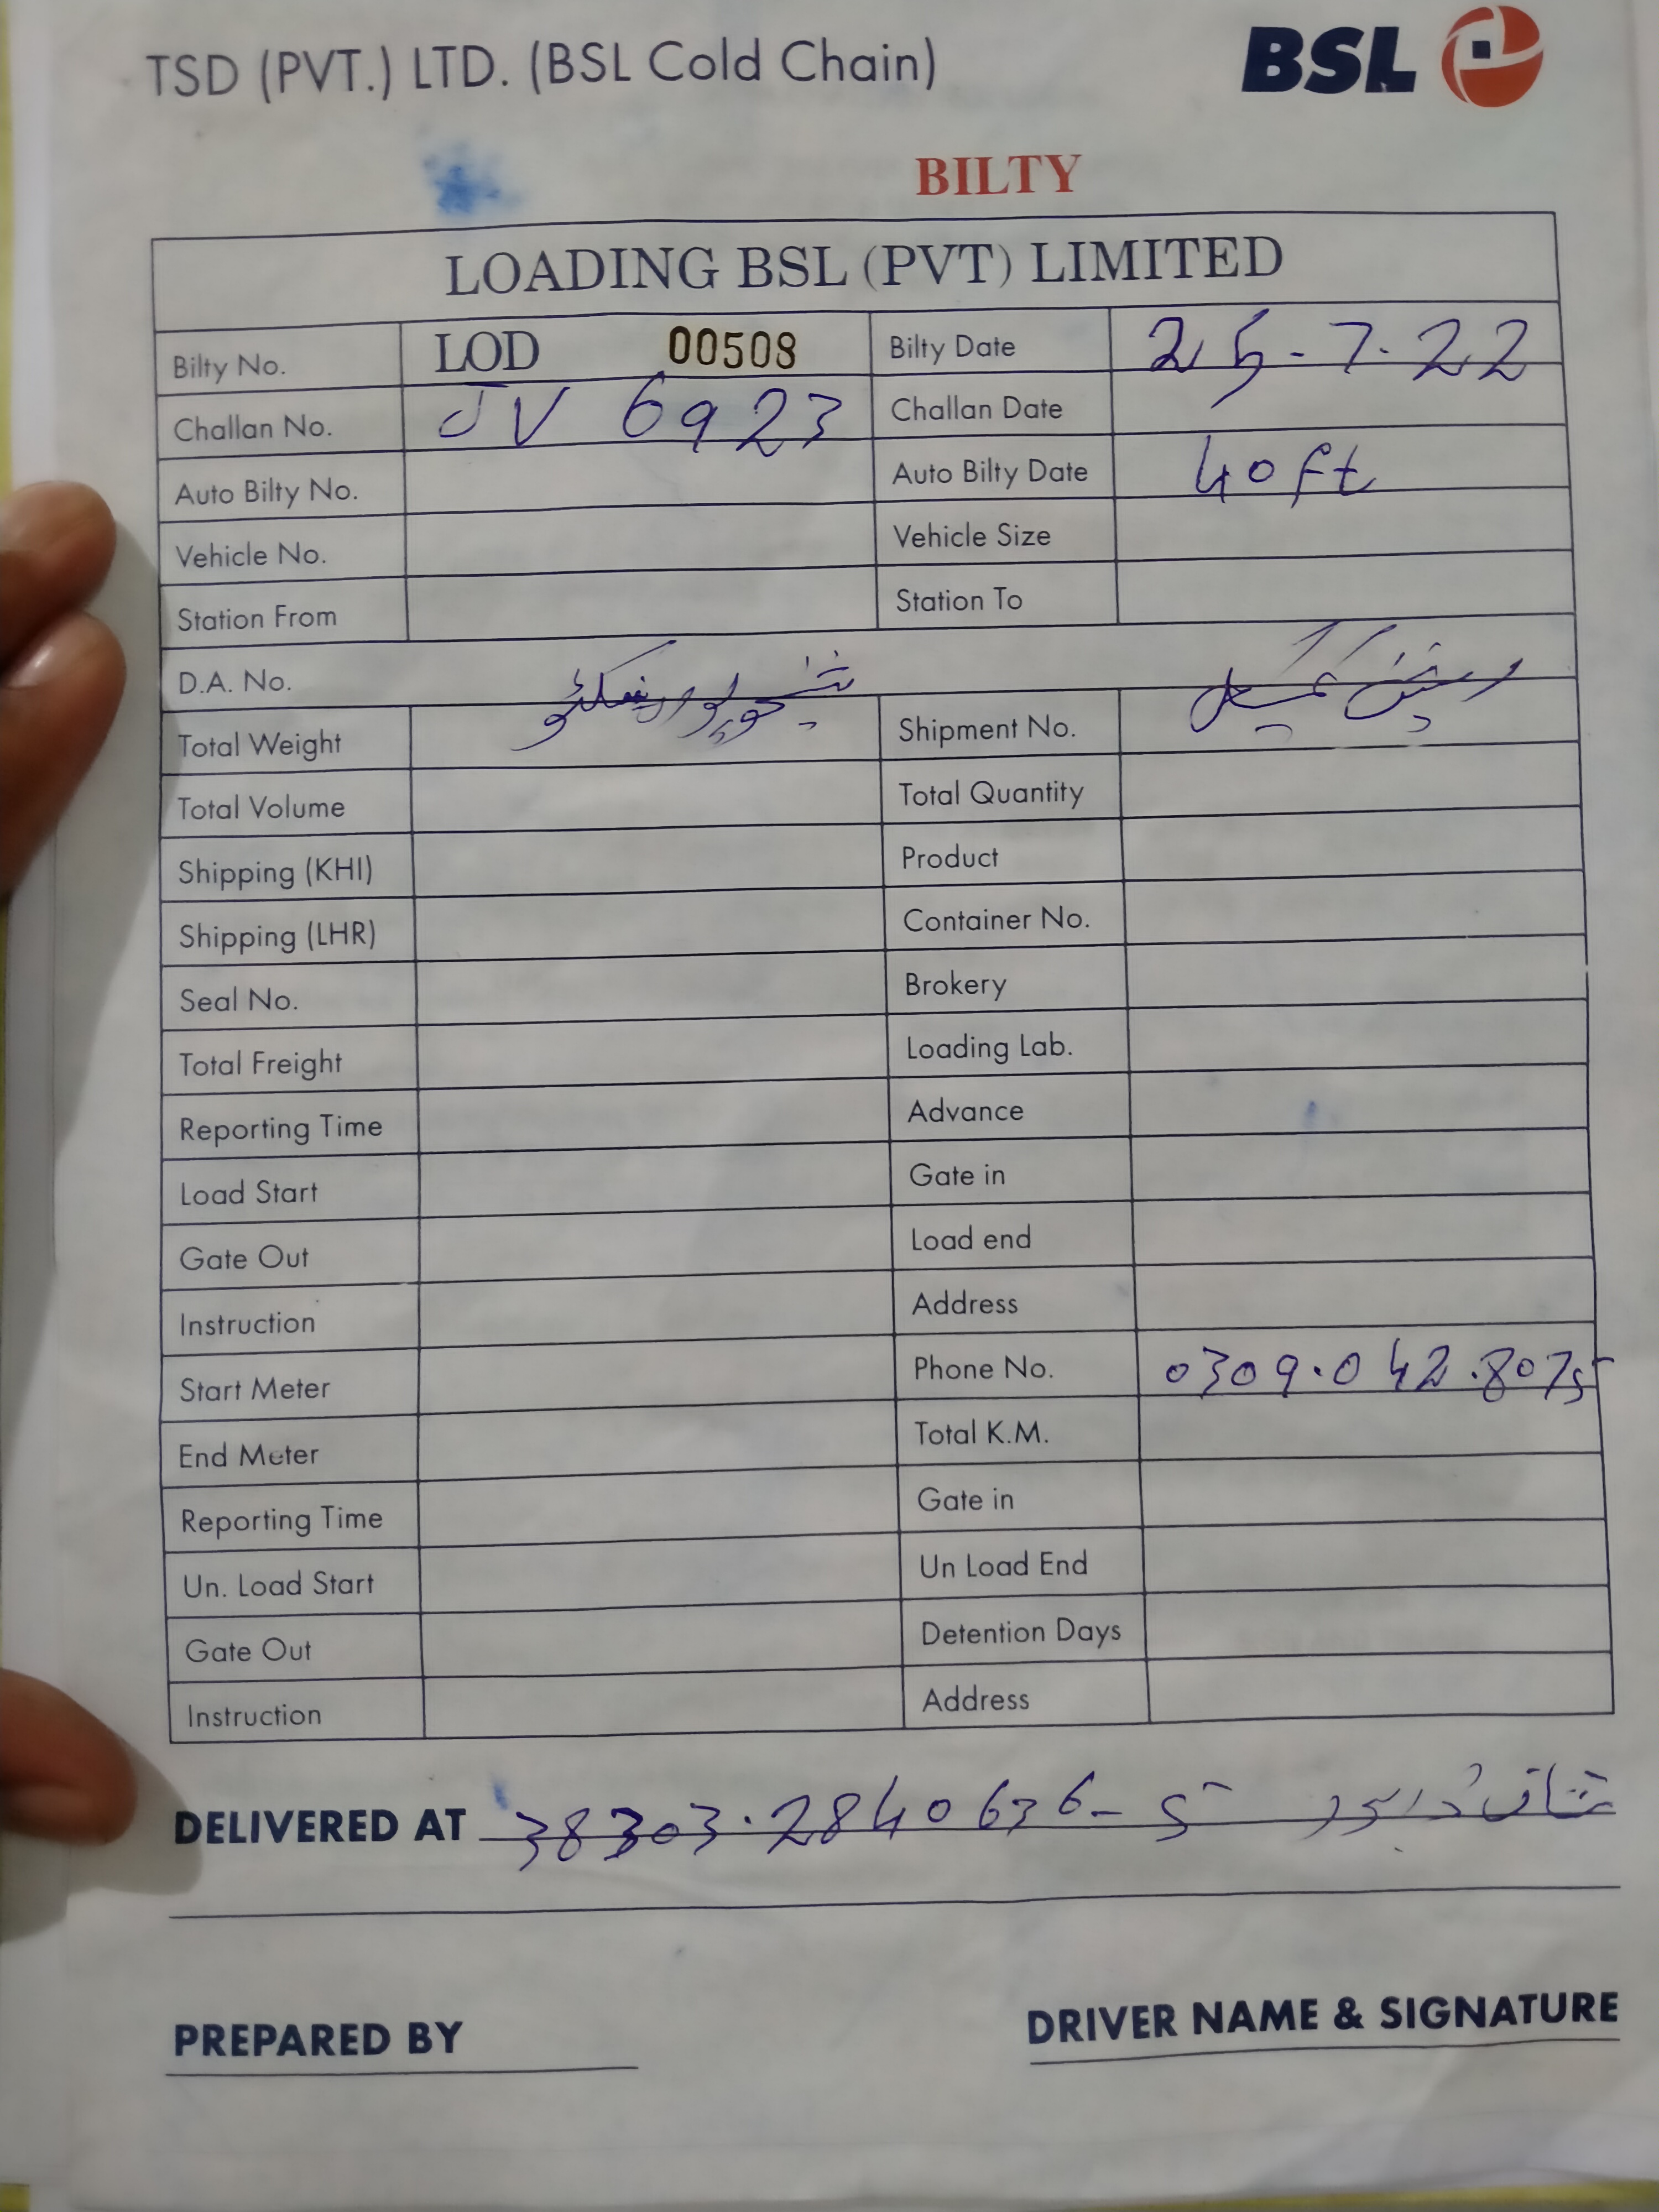 TSD (PVT.) LTD. (BSL Cold Chain) BSL
BILTY
LOADING BSL (PVT) LIMITED
Bilty No. LOD 00508 Bilty Date 25-7-22
Challan No. JV 6923 Challan Date
Auto Bilty No. Auto Bilty Date 40ft
Vehicle No. Vehicle Size
Station From Station To
D.A. No.
Total Weight Shipment No.
Total Volume Total Quantity
Shipping (KHI) Product
Shipping (LHR) Container No.
Seal No. Brokery
Total Freight Loading Lab.
Reporting Time Advance
Load Start Gate in
Gate Out Load end
Instruction Address
Start Meter Phone No. 0309.042.8075
End Meter Total K.M.
Reporting Time Gate in
Un. Load Start Un Load End
Gate Out Detention Days
Instruction Address
DELIVERED AT 38303.2840636-5 ڈرائیور
PREPARED BY DRIVER NAME & SIGNATURE